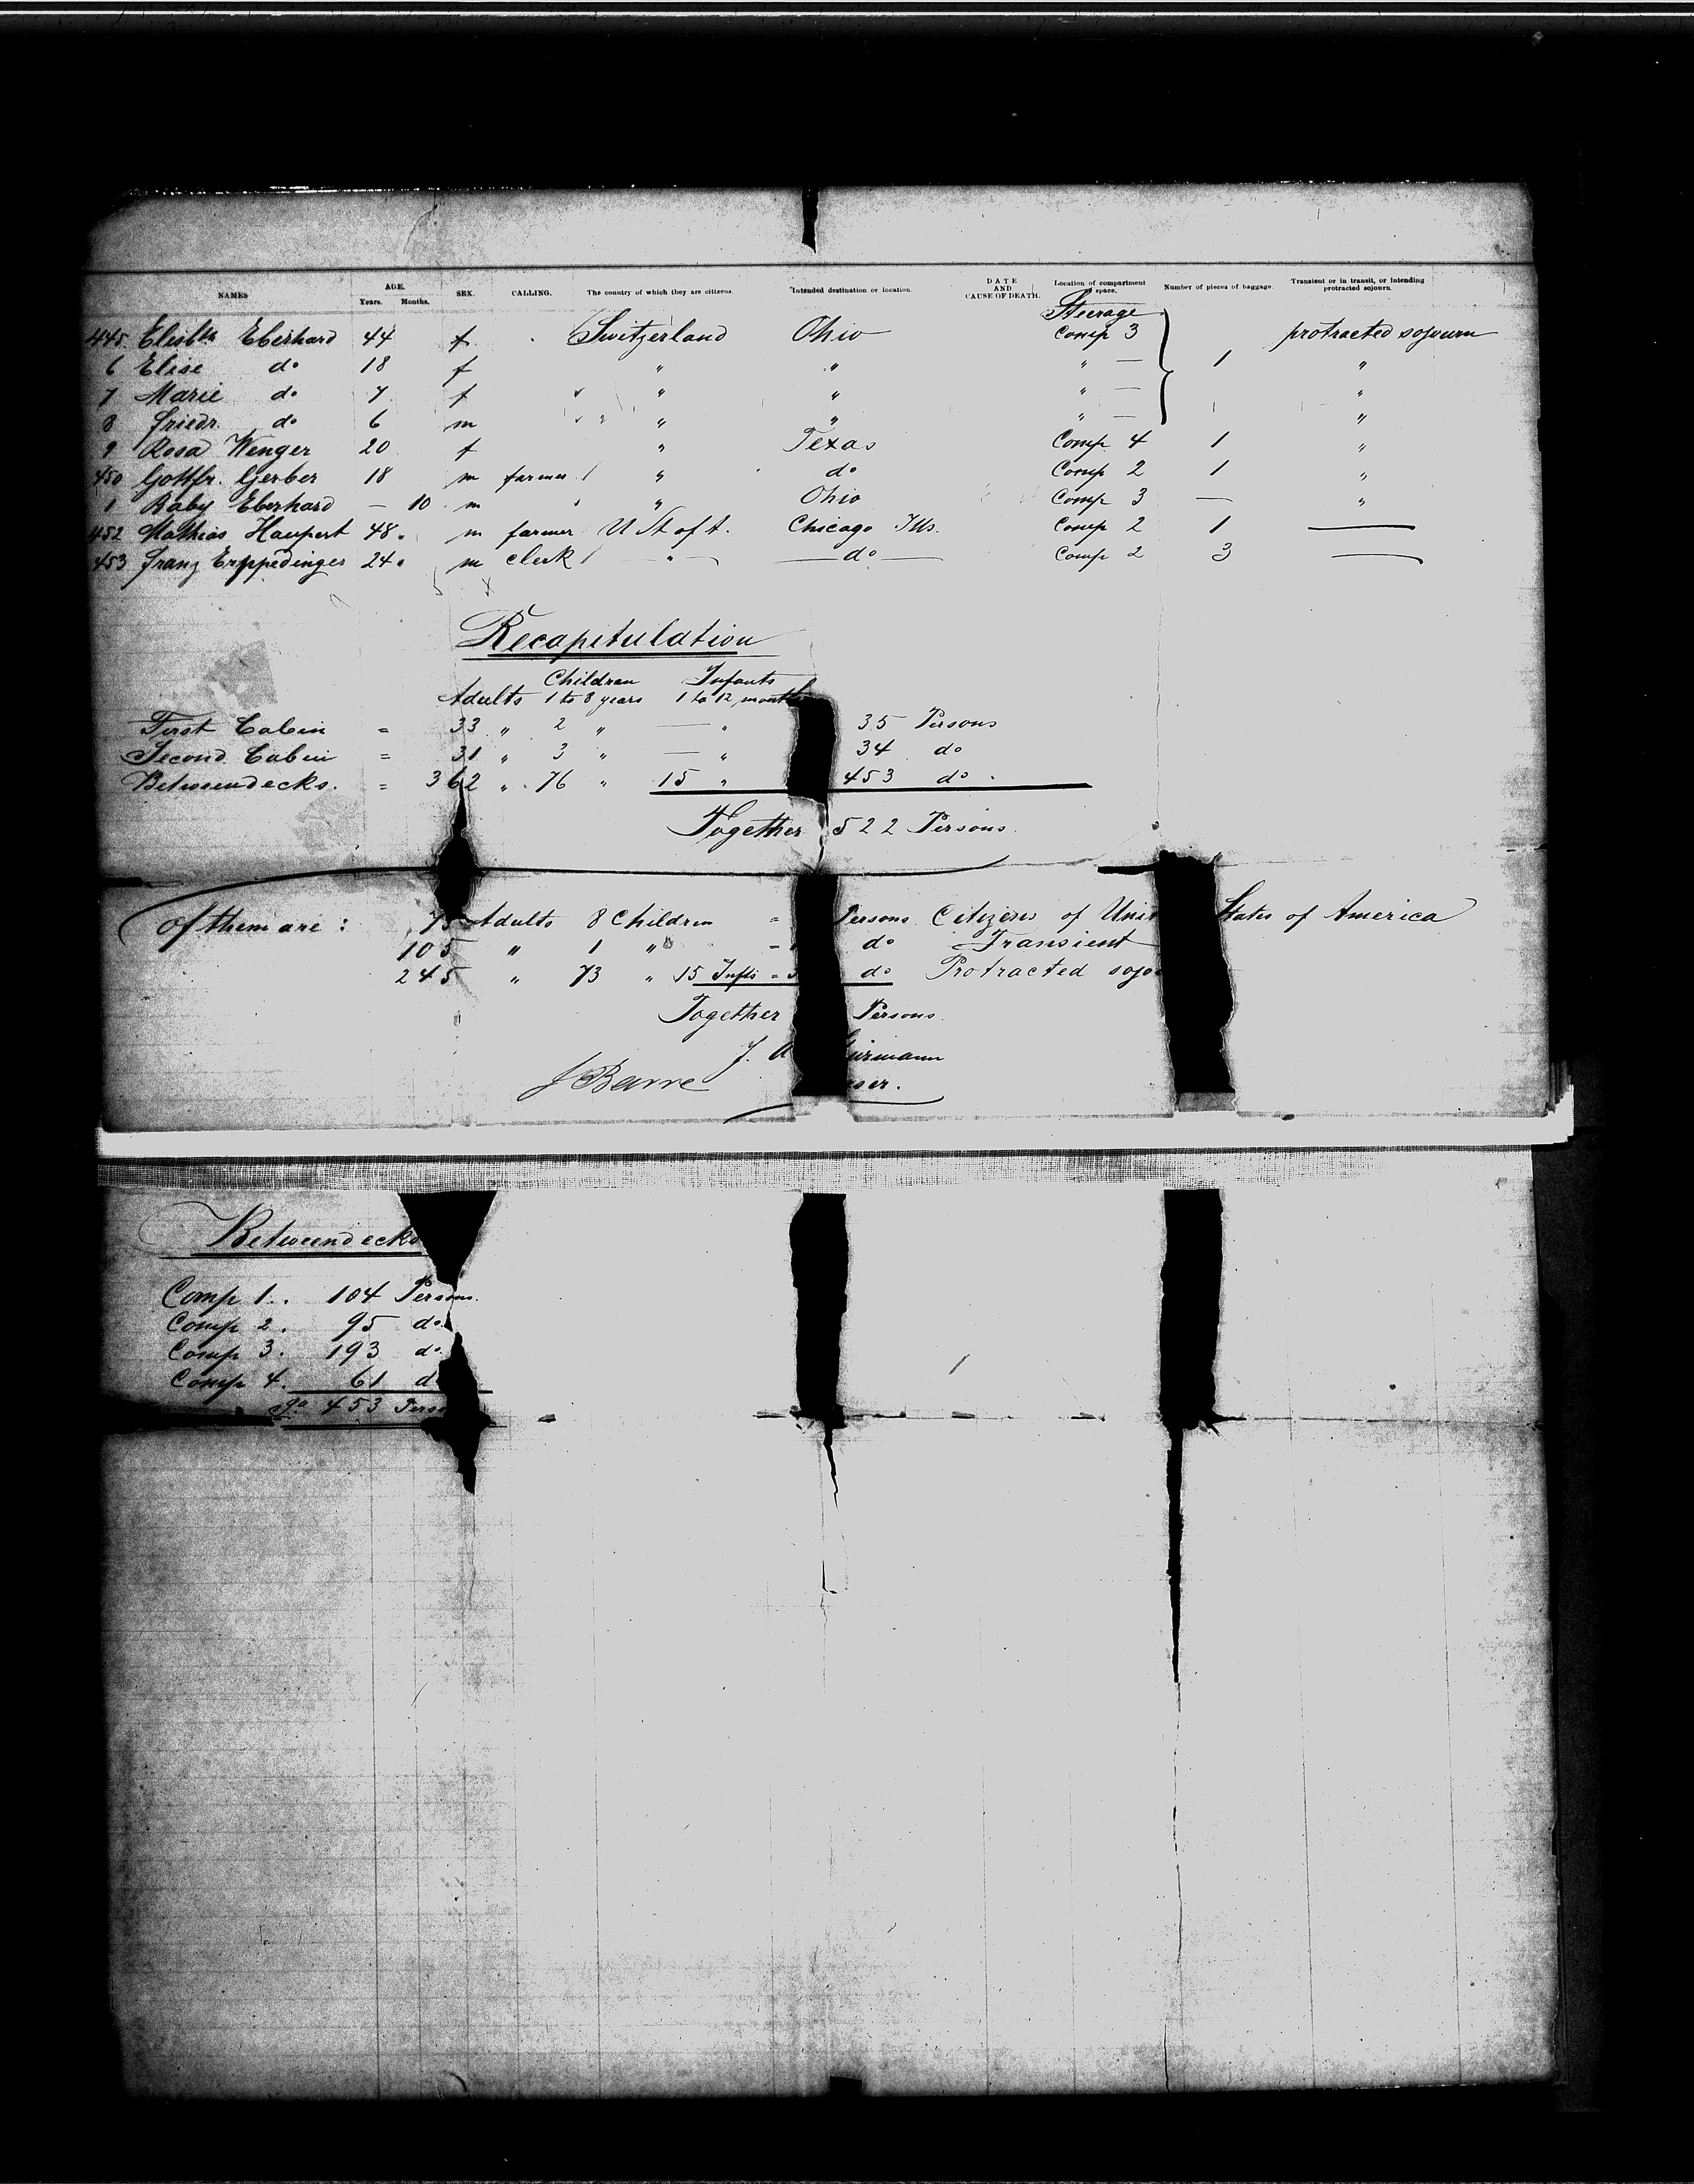 NAMES AGE. Years. Months. SEX. CALLING. The country of which they are citizens. Intended destination or location. DATE AND CAUSE OF DEATH. Location of compartment or space. Number of pieces of baggage. Transient or in transit, or intending protracted sojourn.
Steerage
445. Elisbth Eberhard 44 f Switzerland Ohio Comp 3 protracted sojourn
6 Elise do 18 f " " " — 1 "
7 Marie do 7 f " " " — "
8 Friedr. do 6 m " " " — "
9 Rosa Wenger 20 f " Texas Comp 4 1 "
450 Gottfr. Gerber 18 m farmer " do Comp 2 1 "
1 Baby Eberhard — 10 m " Ohio Comp 3 — "
452 Mathias Haupert 48 m farmer U St of A. Chicago Ills. Comp 2 1 —
453 Franz Erppedinger 24 m clerk — " — — do — Comp 2 3 —
Recapitulation
Children Infants
Adults 1 to 8 years 1 to 12 months
First Cabin = 33 " 2 " — " 35 Persons
Second Cabin = 31 " 3 " — " 34 do
Betweendecks. = 362 " 76 " 15 " 453 do
Together 522 Persons.
Of them are: Adults 8 Children = Persons Citizens of Unit States of America
105 " 1 " = do Transient
245 " 73 " 15 Infts = do Protracted sojo
Together Persons.
J. A urmann
J Barre ser.
Betweendecks
Comp 1. 104 Persons.
Comp 2. 95 do
Comp 3. 193 do
Comp 4. 61 d
453 Perso